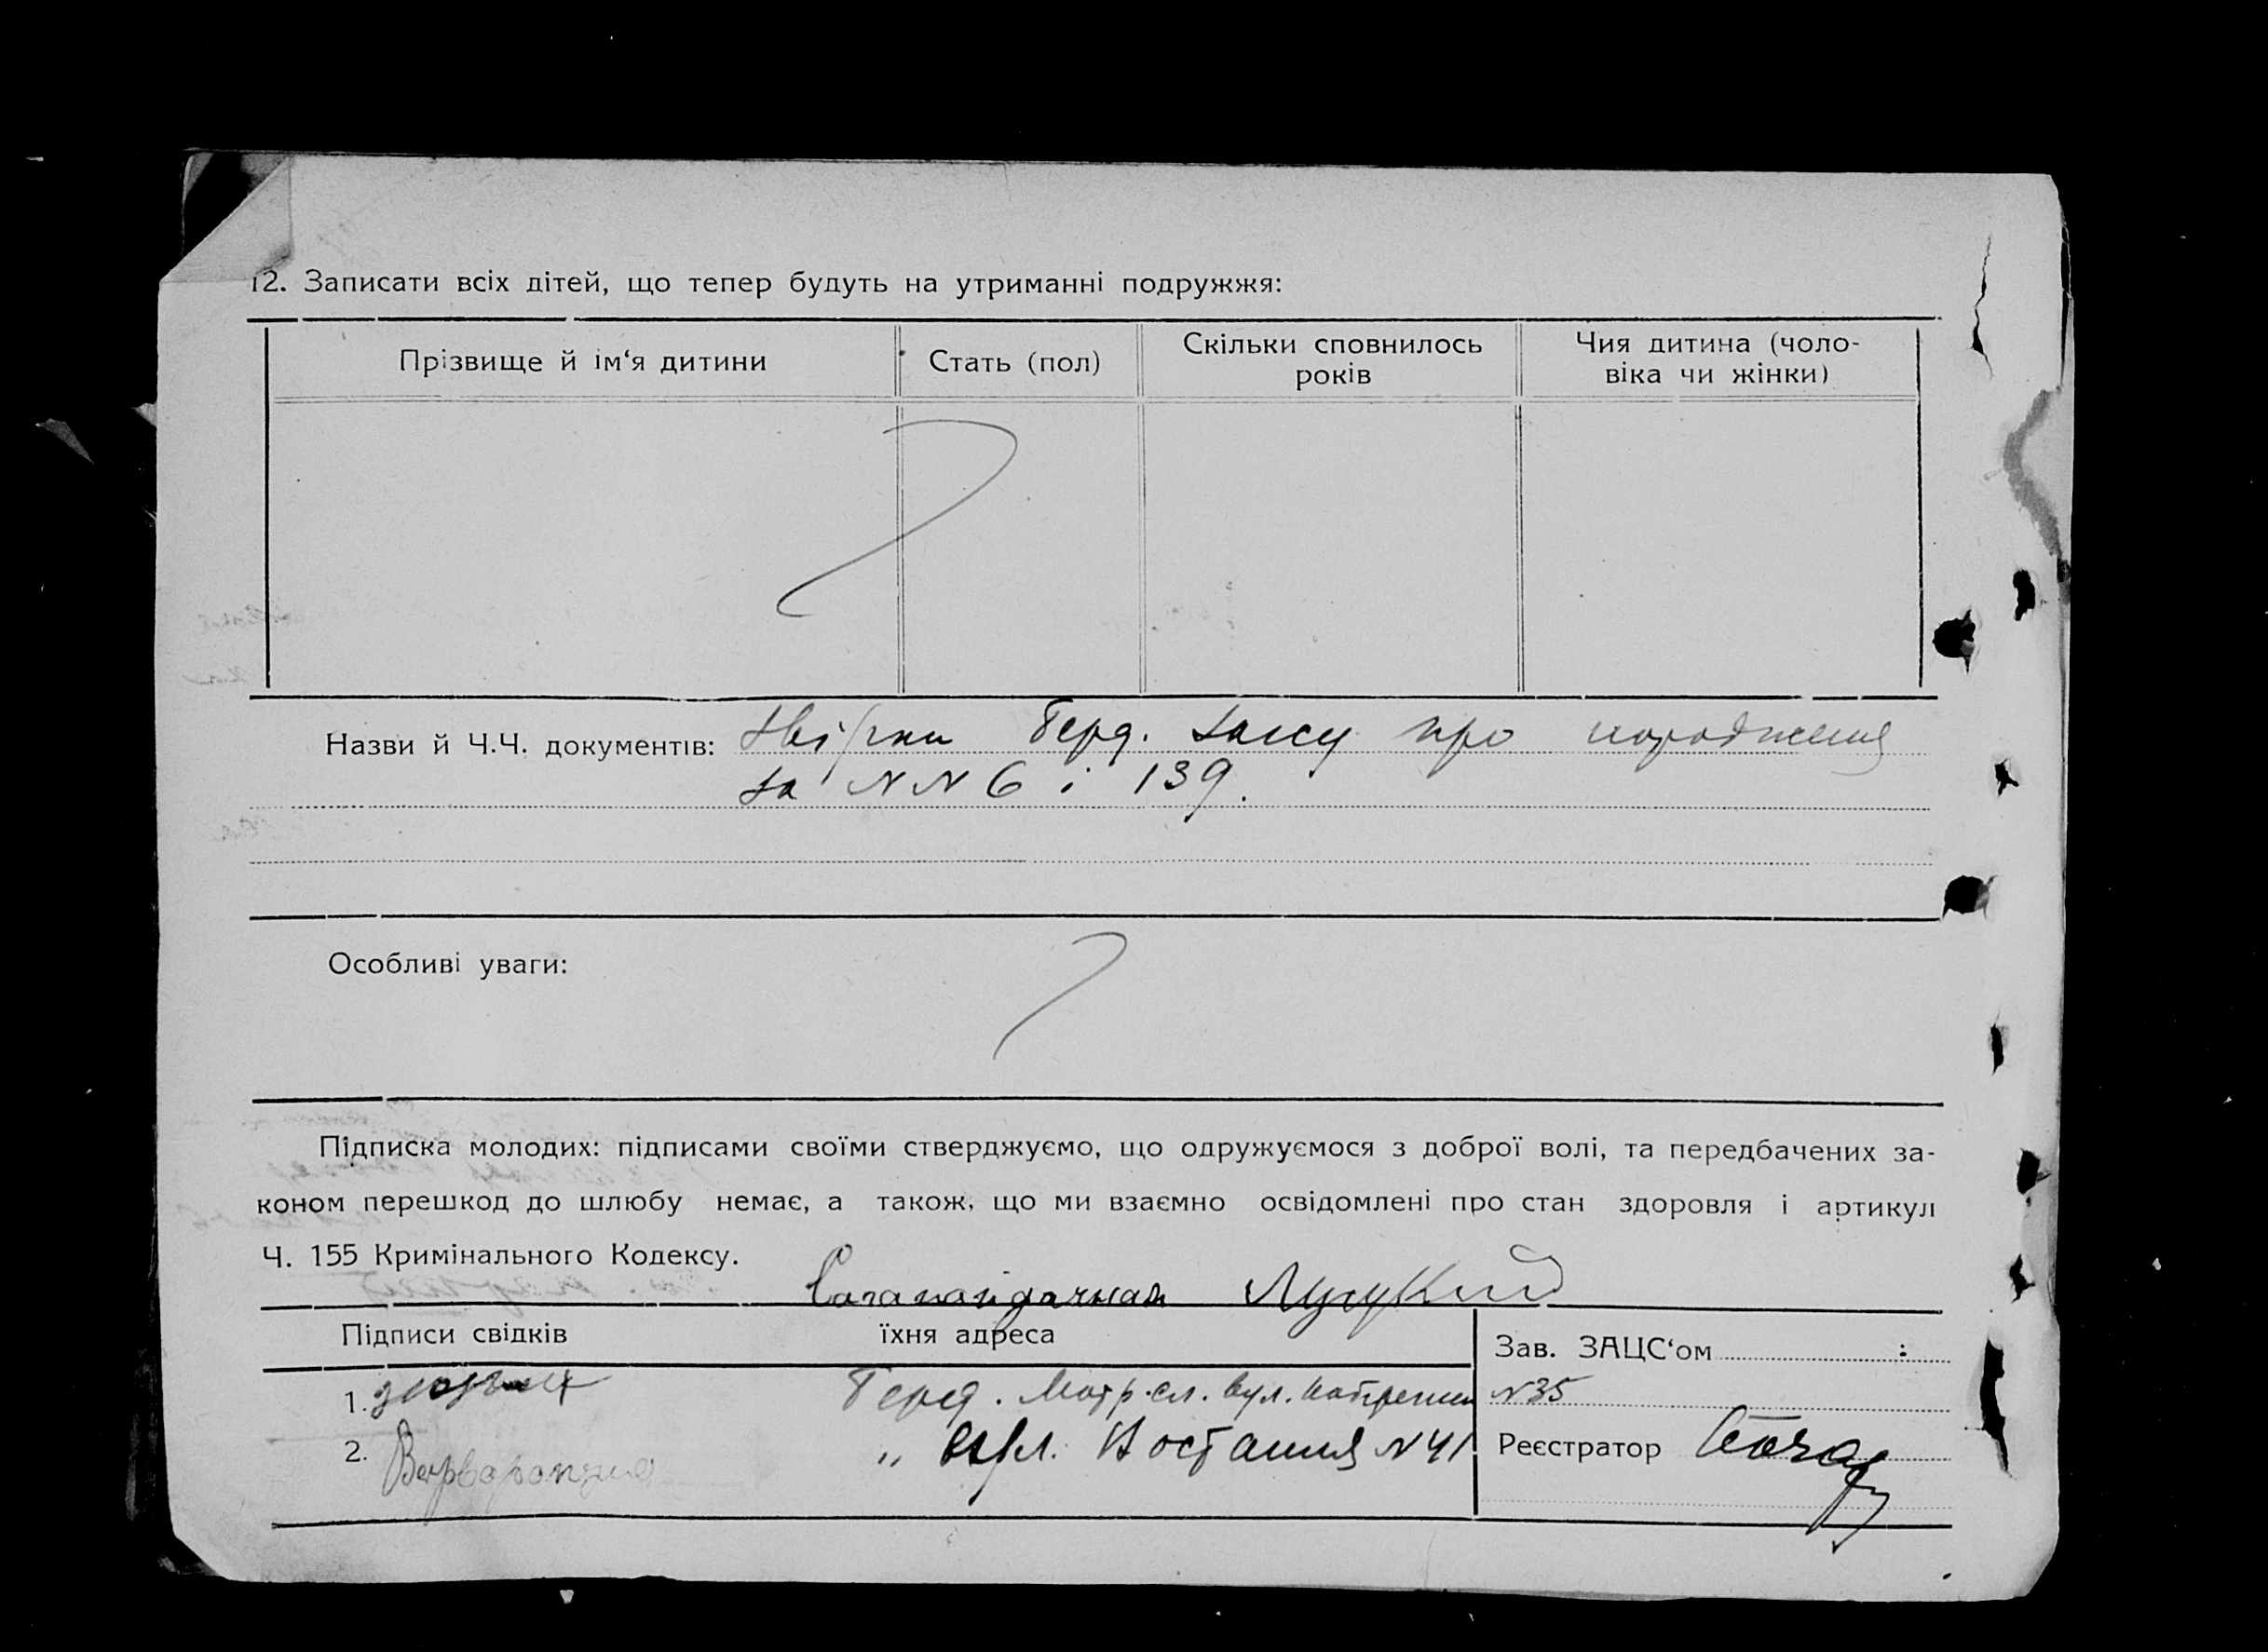 12. Записати всіх дітей, що тепер будуть на утриманні подружжя:
Прізвище й ім‘я дитини
Стать (пол)
Скільки сповнилось
років
Чия дитина (чоло-
віка чи жінки)
Назви й Ч.Ч. документів: Берд. Загсу про народження
за NN 6 і 139.
Особливі уваги:
Підписка молодих: підписами своїми стверджуємо, що одружуємося з доброї волі, та передбачених за-
коном перешкод до шлюбу немає, а також, що ми взаємно освідомлені про стан здоровля і артикул
Ч. 155 Кримінального Кодексу.
Підписи свідків
їхня адреса
Зав. ЗАЦС‘ом :
1. Берд. вул. N35
2. „ Востания N41
Реєстратор